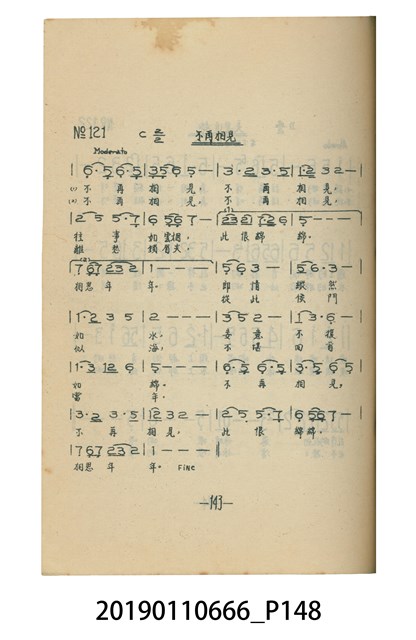 №121 C 2/2 不再相見
Moderato
| 6·5 6·5 3 5 6 5 — | 3·2 3·5 1 2 3 2 — |
(1) 不 再 相 見, 不 再 相 見,
(2) 不 再 相 見, 不 再 相 見,
往 事 如 雲烟 此 恨 綿 綿。
離 愁
7 6 7 2 3 2 | 1 — — — | 5 6 3 | 5·6·3 — |
相思 年 年。 郎 情
從 此 侯 門
| 1·2 3 2 | 5 — — — | 2·3 5 2 | 1·3·6 — |
如 水, 妾 意 不
似 海, 不 回 首
| 1·3 1 2 6 | 5 — — — | 6·5 6·5 | 3 5 6 5 — |
如 綿。 不 再 相 見,
當 年。
| 3·2 3·5 | 1 2 3 2 — | 2 5 5·7 | 6 5 6 7 — |
不 再 相 見。 此 恨 綿 綿。
| 7 6 7 2 3 2 | 1 — — — ‖
相思 年 年。 FINE
—143—
20190110666_P148